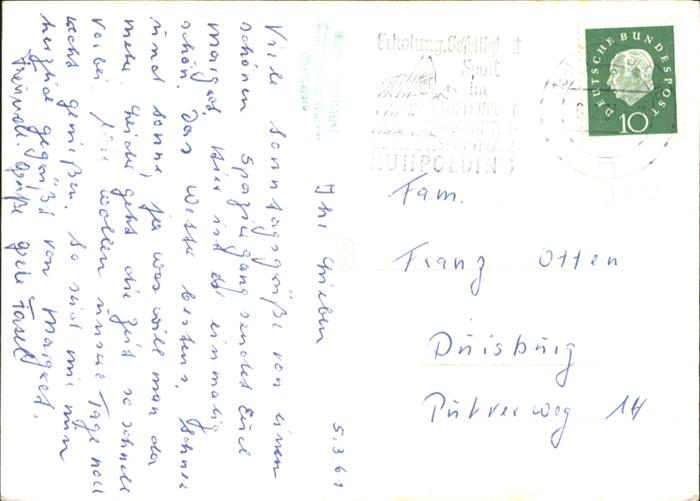 5.3.61
Ihr Lieben
Viele Sonntagsgrüße von einem
schönen Spaziergang sendet Euch
Margret. Hier ist es einmalig
schön. Das Wetter bestens. Schnee
und Sonne, ja was will man da
mehr. Leider geht die Zeit so schnell
vorbei. Wir wollen unsere Tage noch
recht genießen. So seid mir nun
herzlich gegrüßt von Margret.
Freundl. Grüße
Erholung, Geselligkeit
Sport
im
RUHPOLDING
DEUTSCHE BUNDESPOST
10
Fam.
Franz Otten
Duisburg
Pulverweg 14